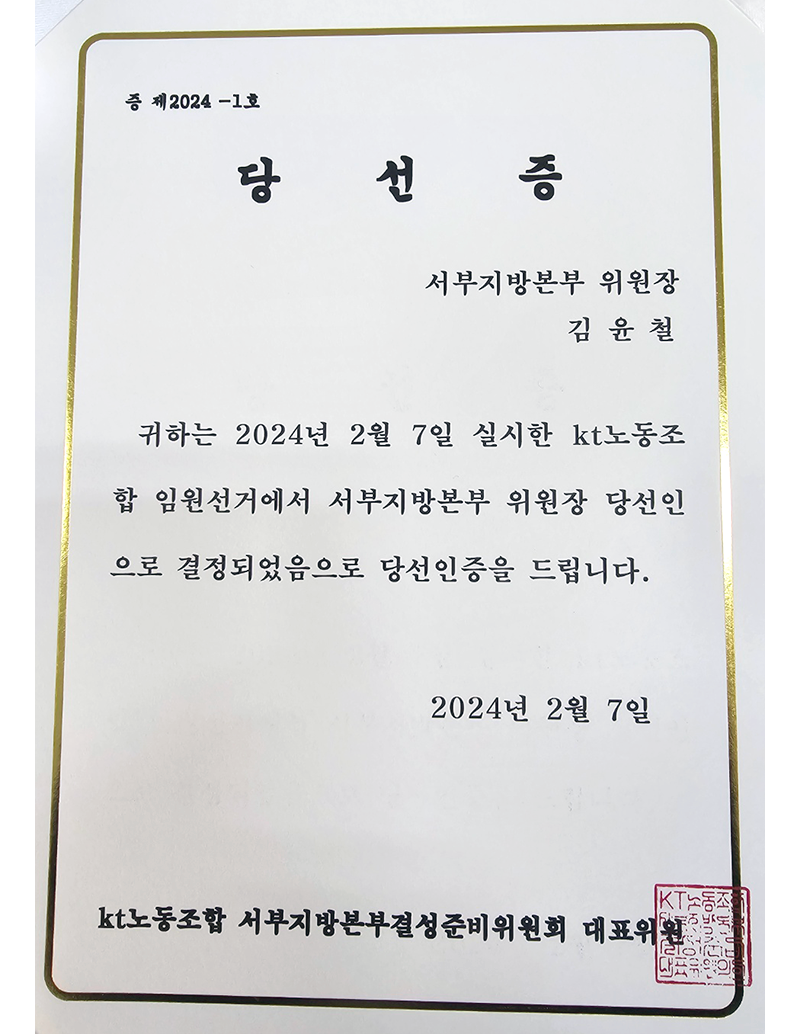 증 제2024 -1호
당 선 증
서부지방본부 위원장
김 윤 철
귀하는 2024년 2월 7일 실시한 kt노동조
합 임원선거에서 서부지방본부 위원장 당선인
으로 결정되었음으로 당선인증을 드립니다.
2024년 2월 7일
kt노동조합 서부지방본부결성준비위원회 대표위원